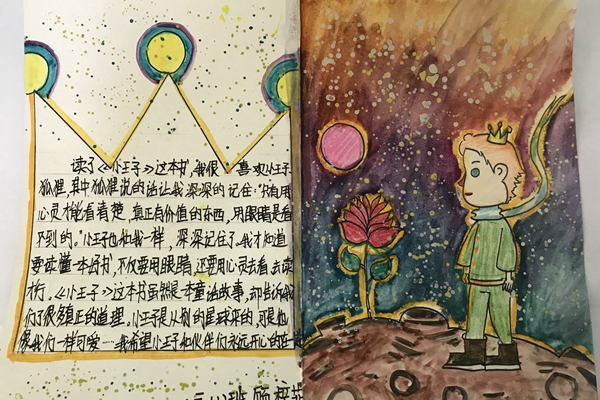 读了《小王子》这本书,我很喜欢小王子
狐狸,其中狐狸说的话让我深深的记住:"只有用
心灵才能看清楚,真正有价值的东西,用眼睛是看
不到的。"小王子也和我一样,深深记住了。我才知道
要读懂一本好书,不仅要用眼睛,还要用心灵去看,去读
析。《小王子》这本书虽然是本童话故事,却告诉我
们了很多真正的道理。小王子是从别的星球来的,可是他
像我们一样可爱……我希望小王子和伙伴们永远开心的在一